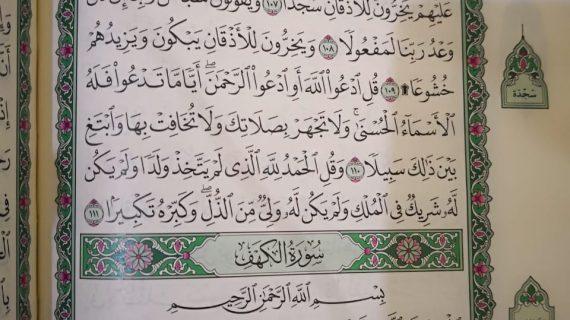 عَلَيْهِمْ يَخِرُّونَ لِلْأَذْقَانِ سُجَّدًا ١٠٧ وَيَقُولُونَ
وَعْدُ رَبِّنَا لَمَفْعُولًا ١٠٨ وَيَخِرُّونَ لِلْأَذْقَانِ يَبْكُونَ وَيَزِيدُهُمْ
خُشُوعًا ۩ ١٠٩ قُلِ ادْعُوا اللَّهَ أَوِ ادْعُوا الرَّحْمَٰنَ ۖ أَيًّا مَّا تَدْعُوا فَلَهُ
الْأَسْمَاءُ الْحُسْنَىٰ ۚ وَلَا تَجْهَرْ بِصَلَاتِكَ وَلَا تُخَافِتْ بِهَا وَابْتَغِ
بَيْنَ ذَٰلِكَ سَبِيلًا ١١٠ وَقُلِ الْحَمْدُ لِلَّهِ الَّذِي لَمْ يَتَّخِذْ وَلَدًا وَلَمْ يَكُن
لَّهُ شَرِيكٌ فِي الْمُلْكِ وَلَمْ يَكُن لَّهُ وَلِيٌّ مِّنَ الذُّلِّ ۖ وَكَبِّرْهُ تَكْبِيرًا ١١١
سُورَةُ الْكَهْفِ
بِسْمِ اللَّهِ الرَّحْمَٰنِ الرَّحِيمِ
سَجْدَة